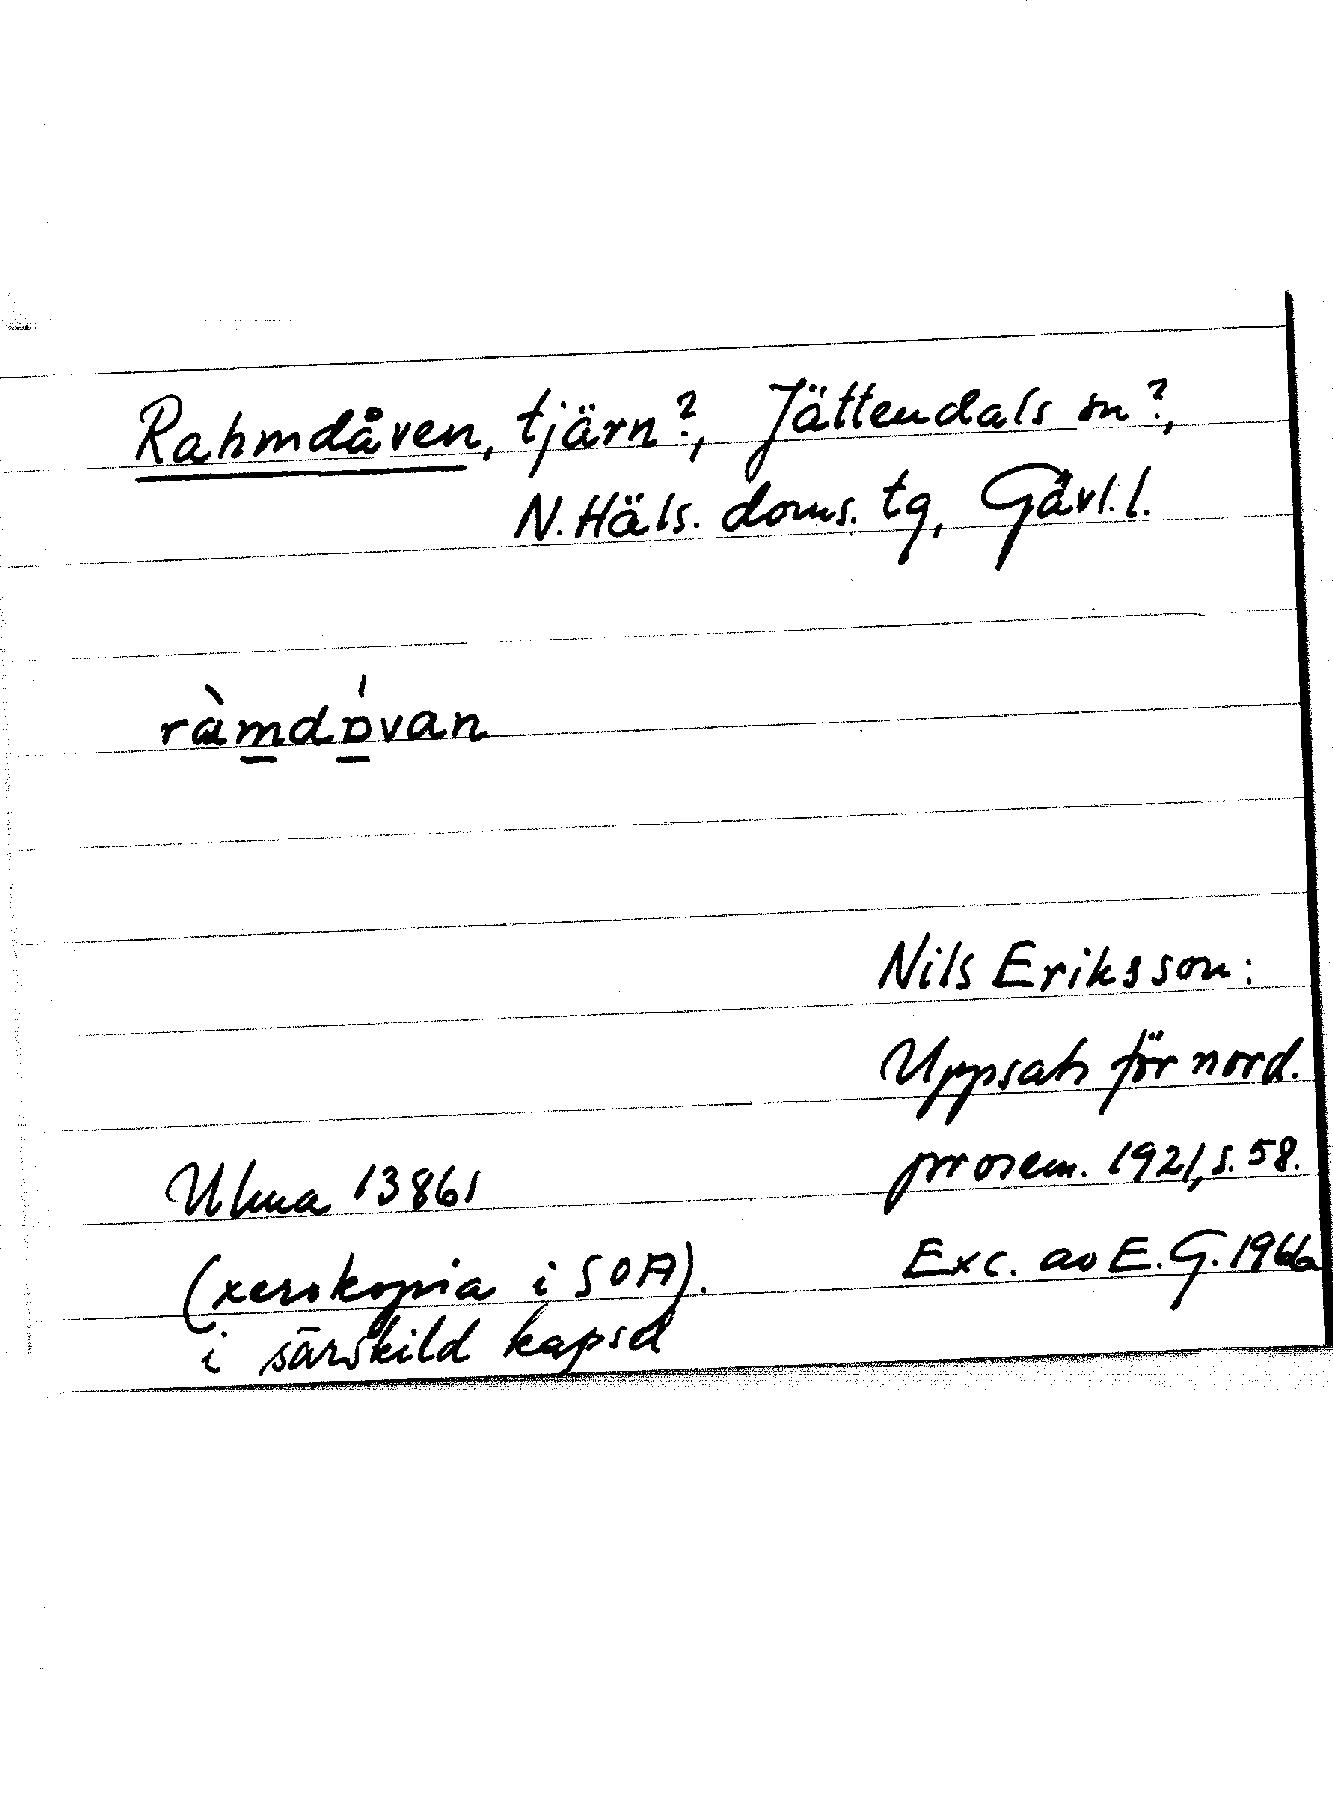 Rahmdåven, tjärn?, Jättendals sn?,
N. Häls. doms. tg, Gävl. l.
ràmdɒ́van
Nils Eriksson:
Uppsats för nord.
prosem. 1921, s. 58.
Ulma 13861
(xerokopia i SOA).
Exc. av E. G. 1966
i särskild kapsel